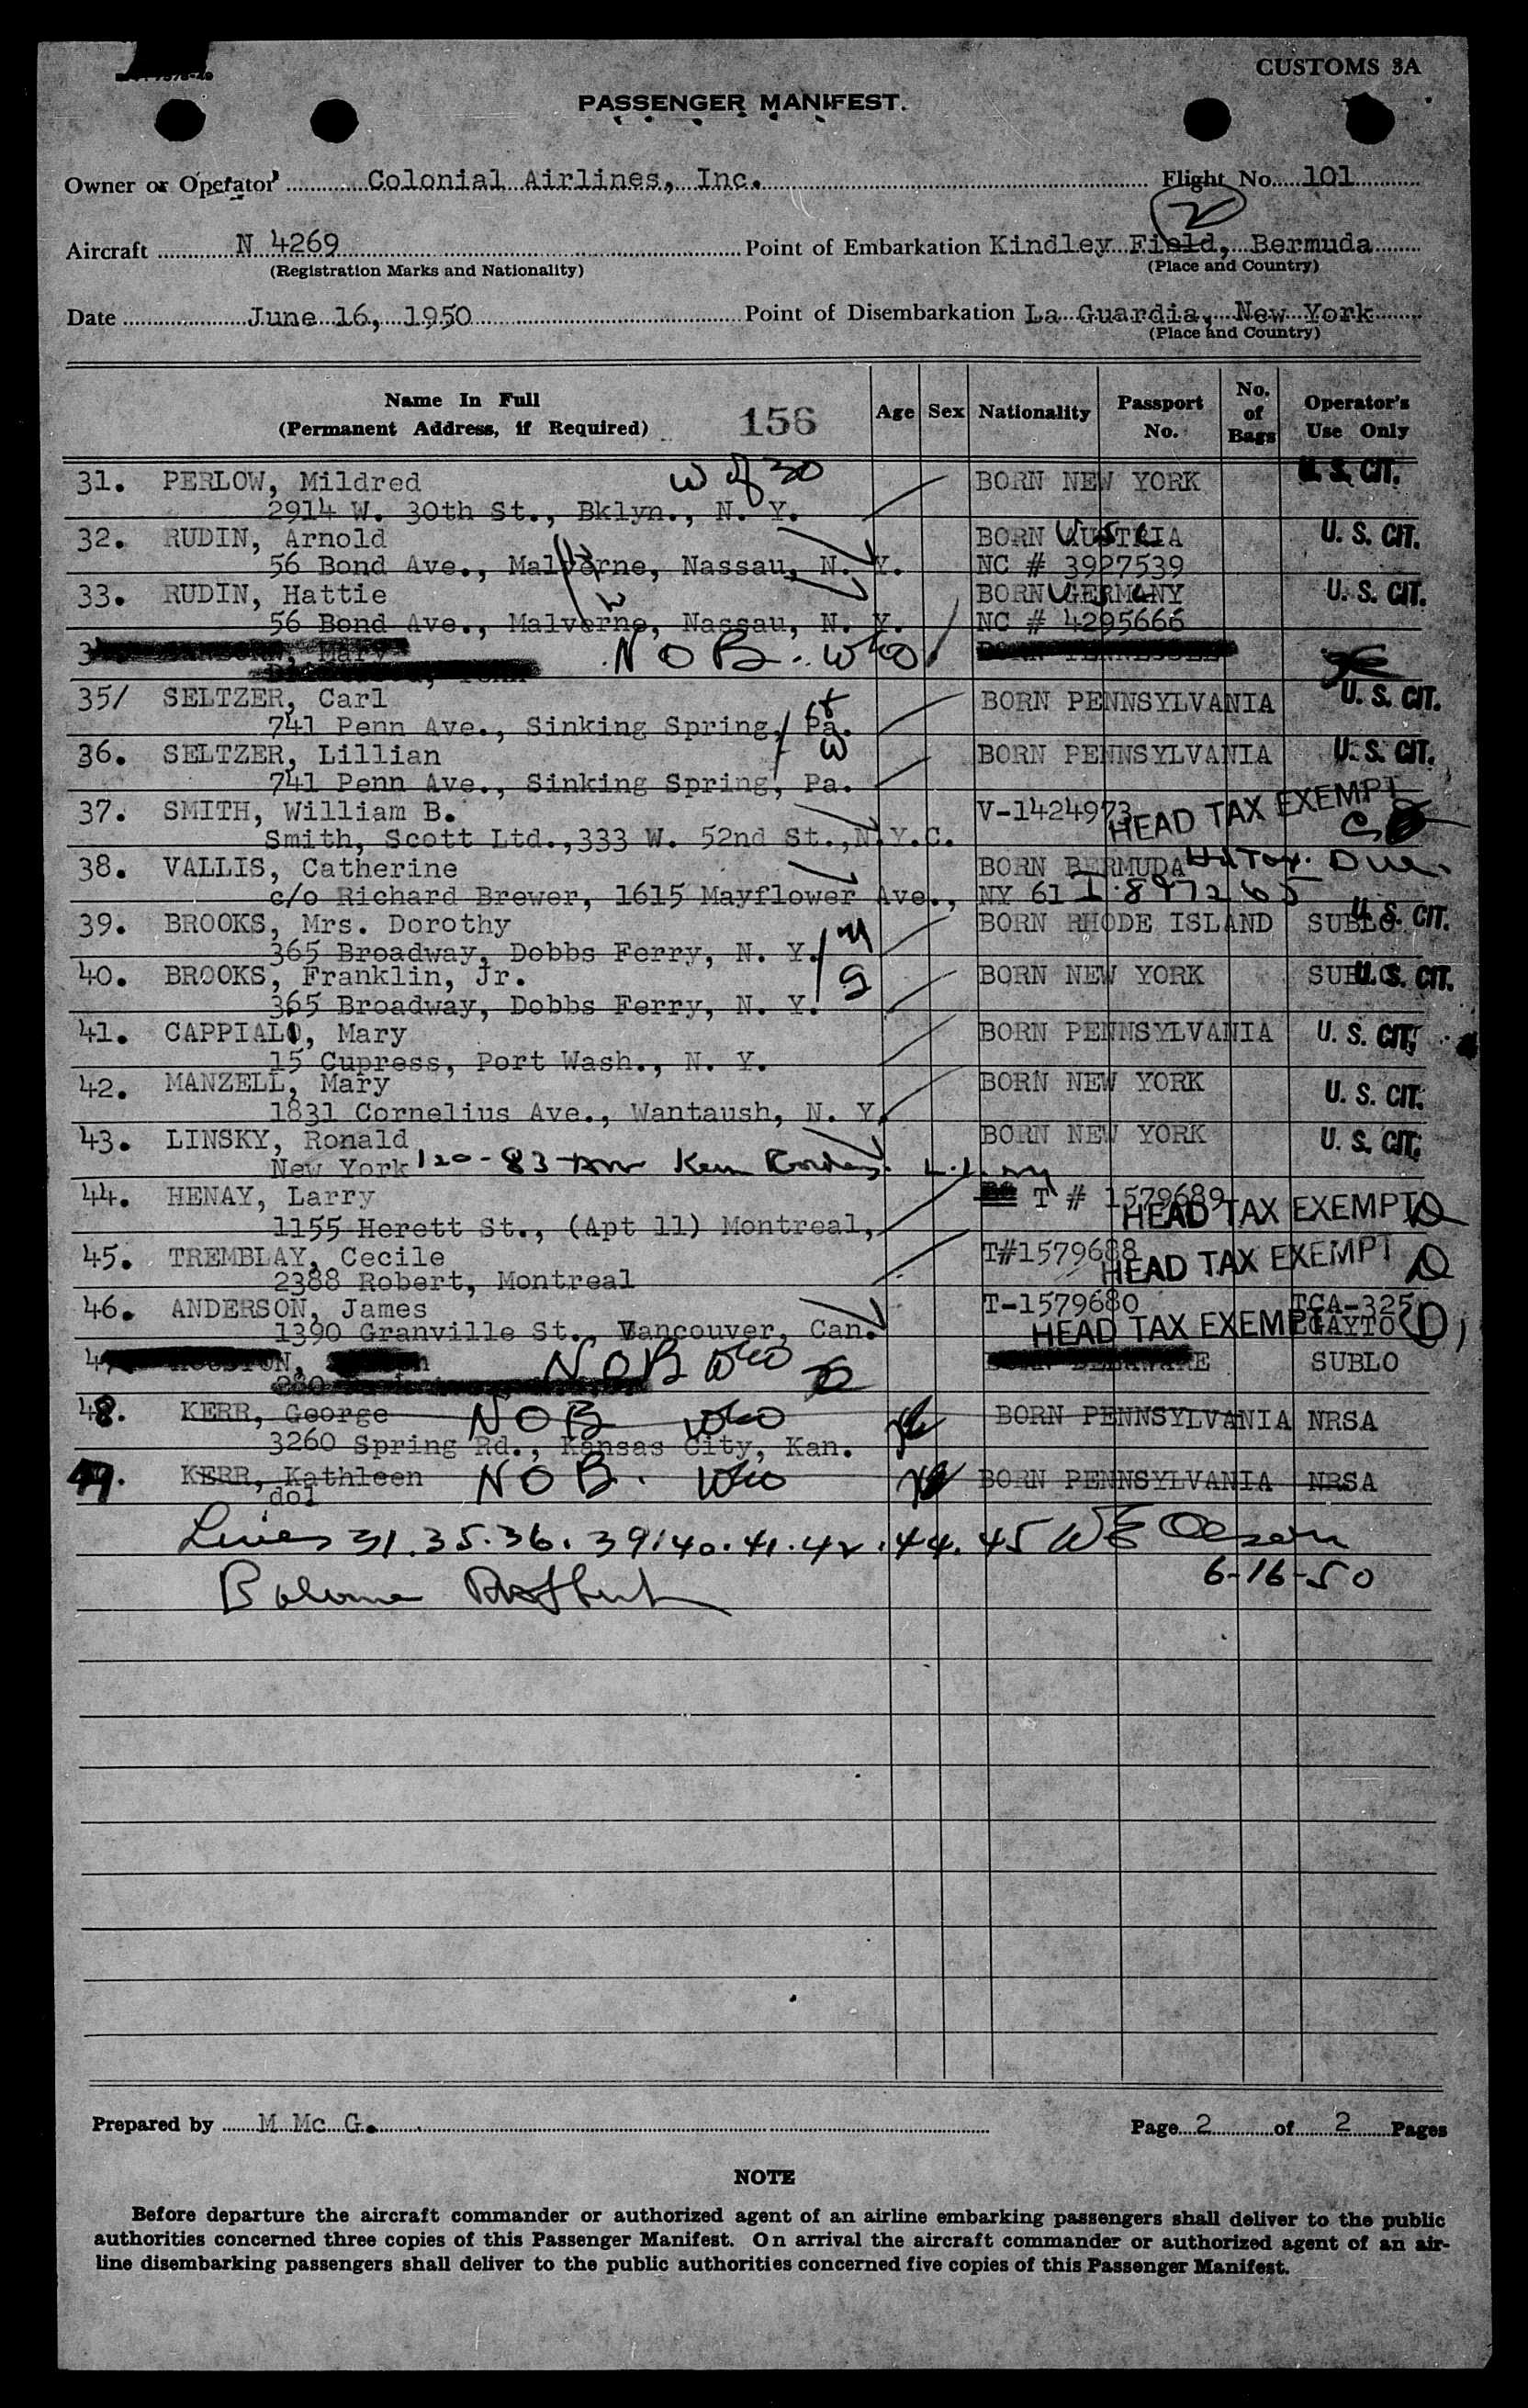 CUSTOMS 3A
PASSENGER MANIFEST.
Owner or Operator Colonial Airlines, Inc. Flight No. 101
2
Aircraft N 4269 Point of Embarkation Kindley Field, Bermuda
(Registration Marks and Nationality) (Place and Country)
Date June 16, 1950 Point of Disembarkation La Guardia, New York
(Place and Country)
Name In Full (Permanent Address, if Required) 156 Age Sex Nationality Passport No. No. of Bags Operator's Use Only
31. PERLOW, Mildred W of 30 BORN NEW YORK U. S. CIT.
2914 W. 30th St., Bklyn., N. Y.
32. RUDIN, Arnold BORN AUSTRIA U. S. CIT.
56 Bond Ave., Malverne, Nassau, N. Y. NC # 3927539
33. RUDIN, Hattie BORN GERMANY U. S. CIT.
56 Bond Ave., Malverne, Nassau, N. Y. NC # 4295666
Mary N O B. WHO
35/ SELTZER, Carl BORN PENNSYLVANIA U. S. CIT.
741 Penn Ave., Sinking Spring, Pa.
36. SELTZER, Lillian W BORN PENNSYLVANIA U. S. CIT.
741 Penn Ave., Sinking Spring, Pa.
37. SMITH, William B. V-1424973 HEAD TAX EXEMPT
Smith, Scott Ltd.,333 W. 52nd St.,N.Y.C.
38. VALLIS, Catherine BORN BERMUDA Hd Tax. Due.
c/o Richard Brewer, 1615 Mayflower Ave., NY 61 I-897265
39. BROOKS, Mrs. Dorothy M BORN RHODE ISLAND SUBLO U. S. CIT.
365 Broadway, Dobbs Ferry, N. Y.
40. BROOKS, Franklin, Jr. S BORN NEW YORK SUBLO U. S. CIT.
365 Broadway, Dobbs Ferry, N. Y.
41. CAPPIALO, Mary BORN PENNSYLVANIA U. S. CIT.
15 Cupress, Port Wash., N. Y.
42. MANZELL, Mary BORN NEW YORK U. S. CIT.
1831 Cornelius Ave., Wantaush, N. Y.
43. LINSKY, Ronald BORN NEW YORK U. S. CIT.
New York 120-83 Kew Gardens. L.I. NY
44. HENAY, Larry T # 1579689 HEAD TAX EXEMPT
1155 Herett St., (Apt 11) Montreal,
45. TREMBLAY, Cecile T#1579688 HEAD TAX EXEMPT
2388 Robert, Montreal
46. ANDERSON, James T-1579680 TCA-325
1390 Granville St., Vancouver, Can. HEAD TAX EXEMPT
N O B WHO SUBLO
48. KERR, George N O B WHO BORN PENNSYLVANIA NRSA
3260 Spring Rd., Kansas City, Kan.
49. KERR, Kathleen N O B. WHO BORN PENNSYLVANIA NRSA
do1
Lines 31.35.36.39.40.41.42.44.45 W E Olsen
Balance 6-16-50
Prepared by M Mc G. Page 2 of 2 Pages
NOTE
Before departure the aircraft commander or authorized agent of an airline embarking passengers shall deliver to the public
authorities concerned three copies of this Passenger Manifest. On arrival the aircraft commander or authorized agent of an air-
line disembarking passengers shall deliver to the public authorities concerned five copies of this Passenger Manifest.